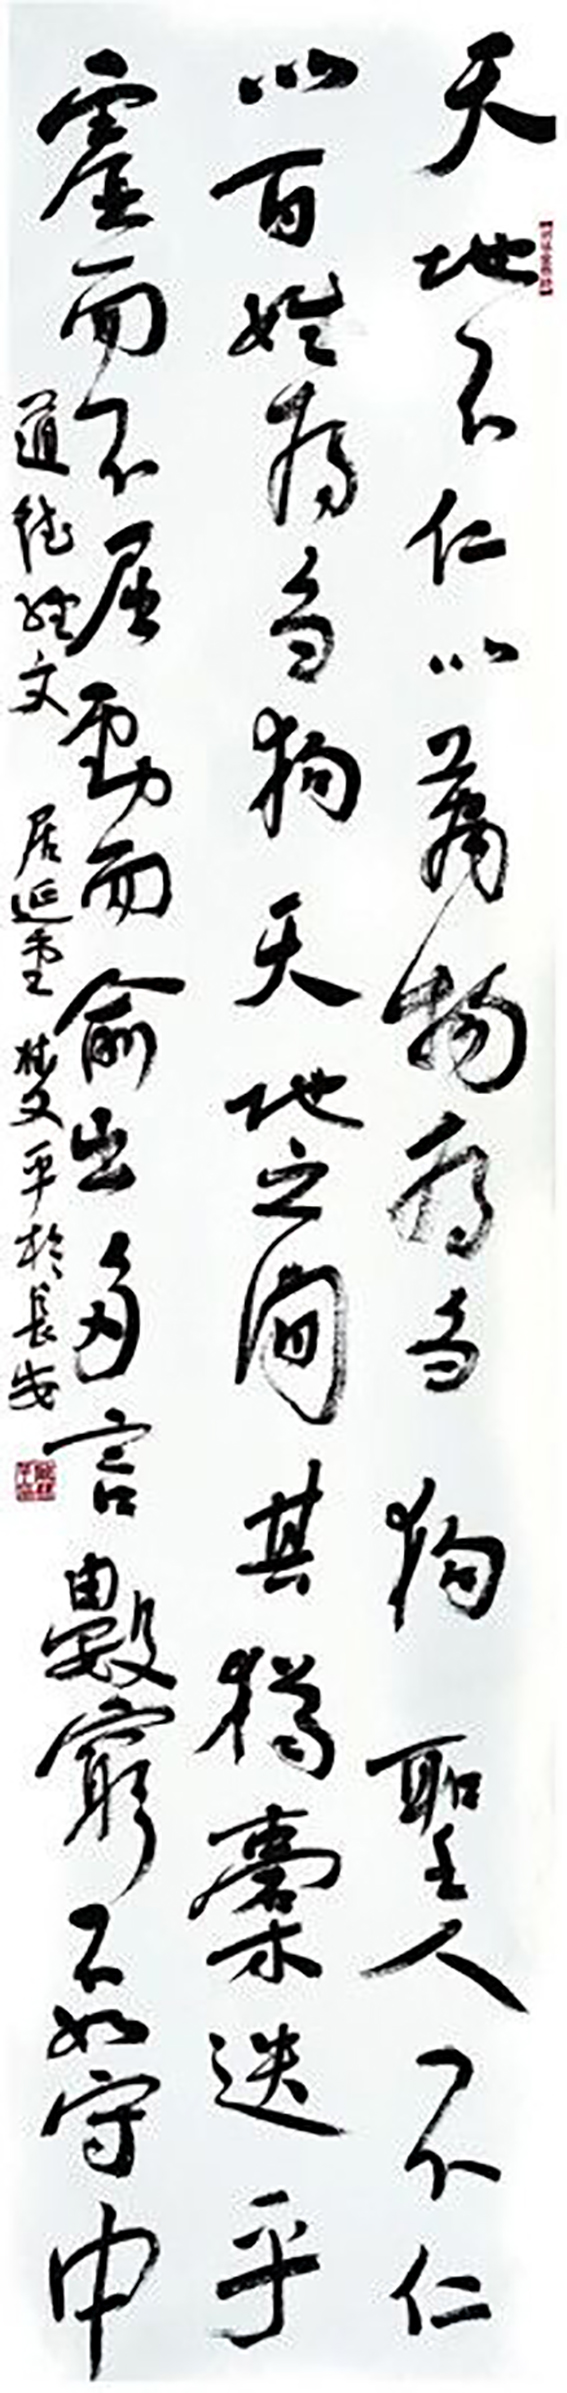 天地不仁以萬物為刍狗聖人不仁
以百姓為刍狗天地之间其猶橐迭乎
虛而不屈動而俞出多言數窮不如守中
道德經文 居延堂 平於長安